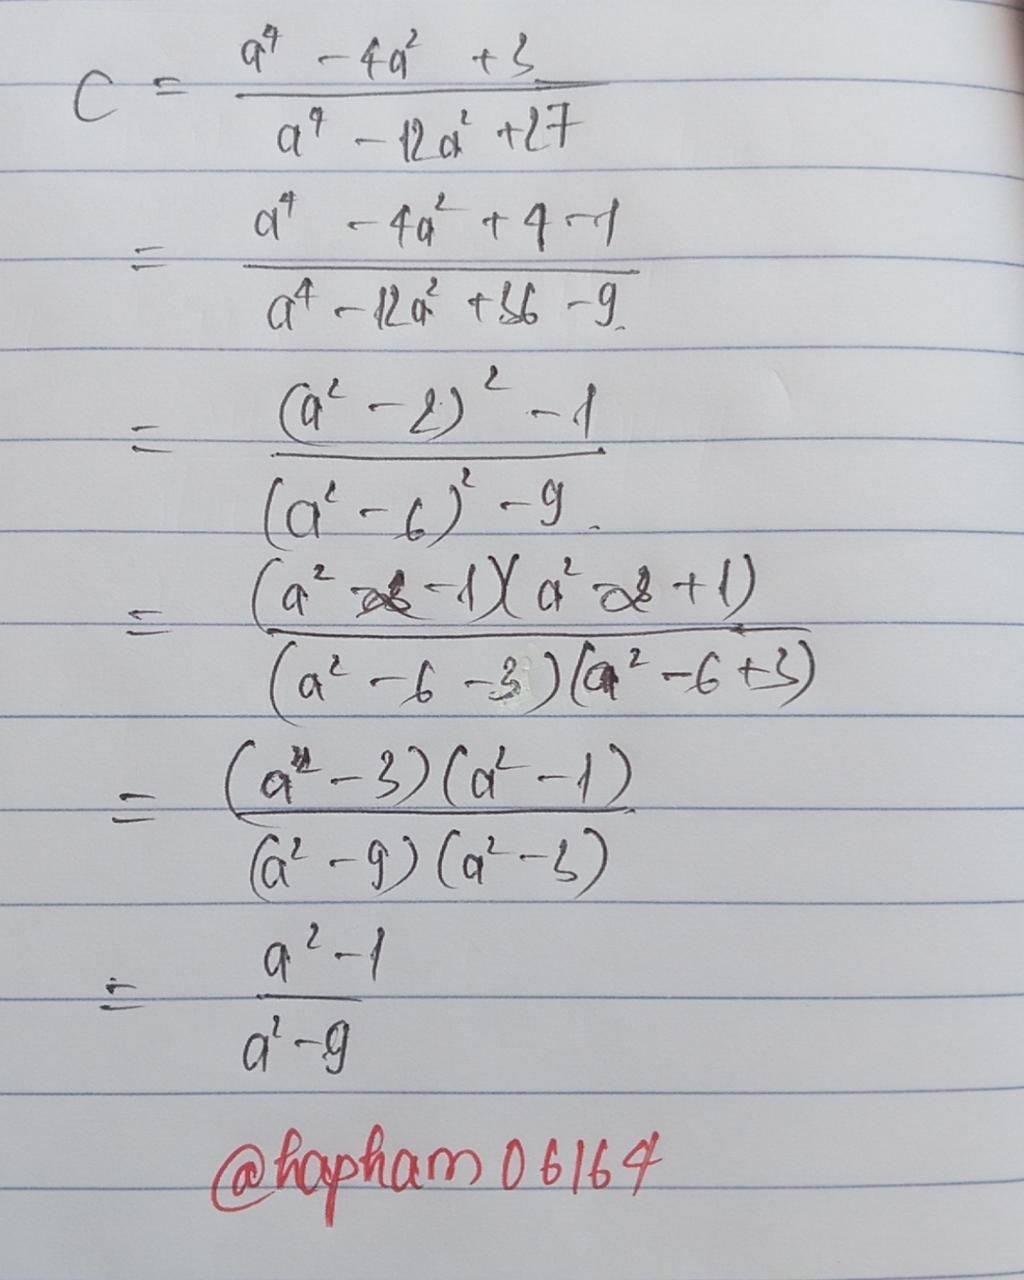 C = a⁴ - 4a² + 3 / a⁴ - 12a² + 27
= a⁴ - 4a² + 4 - 1 / a⁴ - 12a² + 36 - 9
= (a² - 2)² - 1 / (a² - 6)² - 9
= (a² - 2 - 1)(a² - 2 + 1) / (a² - 6 - 3)(a² - 6 + 3)
= (a² - 3)(a² - 1) / (a² - 9)(a² - 3)
= a² - 1 / a² - 9
@hapham06164